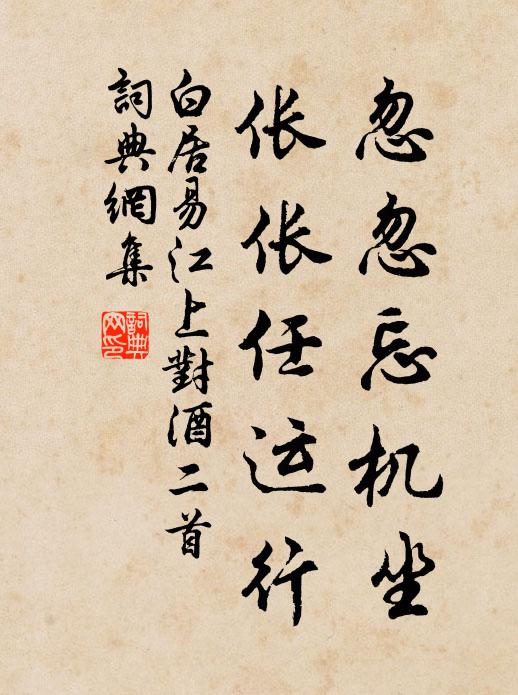 忽忽忘机坐
伥伥任运行
白居易江上對酒二首
詞典網集
詞典網印